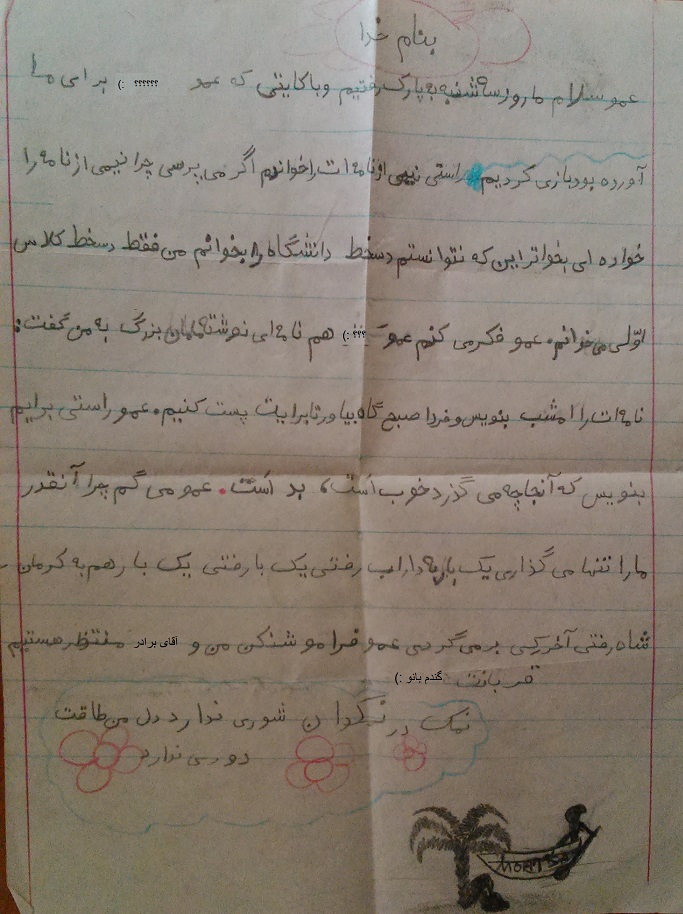 بنام خدا
عمو سلام ما روز سه شنبه به پارک رفتیم و با کایتی که عمو ؟؟؟؟؟؟ :) برای ما
آورده بود بازی کردیم راستی نیمی از نامه ات را خواندم اگر می پرسی چرا نیمی از نامه را
خوانده ای بخواتر این که نتوانستم دسخط دانشگاه را بخوانم من فقط دسخط کلاس
اوّلی می خوانم. عمو فکر می کنم عمو ؟؟؟ :) هم نامه ای نوشته مامان بزرگ به من گفت:
نامه ات را امشب بنویس و فردا صبح گاه بیاور تا برایت پست کنیم. عمو راستی برایم
بنویس که آنجا چه می گذرد خوب است، بد است. عمو می گم چرا آنقدر
ما را تنها می گذاری یک بار به داراب رفتی یک بار رفتی یک بار هم به کرمان
شاه رفتی آخر کی بر می گردی عمو فراموشنکن من و آقای برادر منتظر هستیم
قربانت گندم بانو :)
نمک در نمکدان شوری ندارد دل من طاقت
دوری ندارد